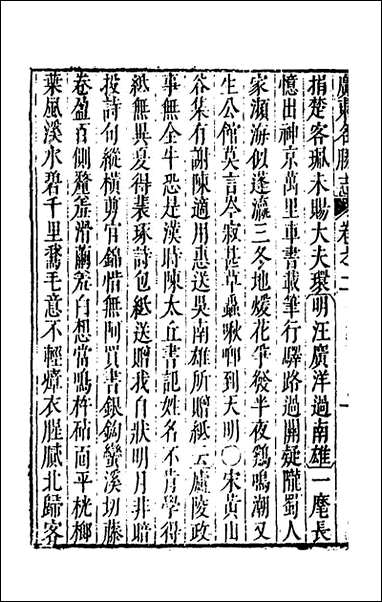 廣東名勝志 卷之二
捐楚客珮未賜大夫環 明汪廣洋過南雄 一麾長
憶出神京萬里車書載筆行驛路過關疑隴蜀人
家瀕海似蓬瀛三冬地煖花爭發半夜鷄鳴潮又
生公館莫言岑寂甚草蟲啾唧到大明〇宋黃山
谷集有謝陳適用惠送吳南雄所贈紙云廬陵政
事無全牛恐是漢時陳太丘書記姓名不肯學得
紙無異夏得裘琢詩包紙送贈我自狀明月非暗
投詩句縱橫剪宮錦惜無阿買書銀鉤蠻溪切藤
卷盈百側釐羞滑繭羞白想當鳴杵砧面平桄榔
葉風溪水碧千里鵞毛意不輕瘴衣腥膩北歸客